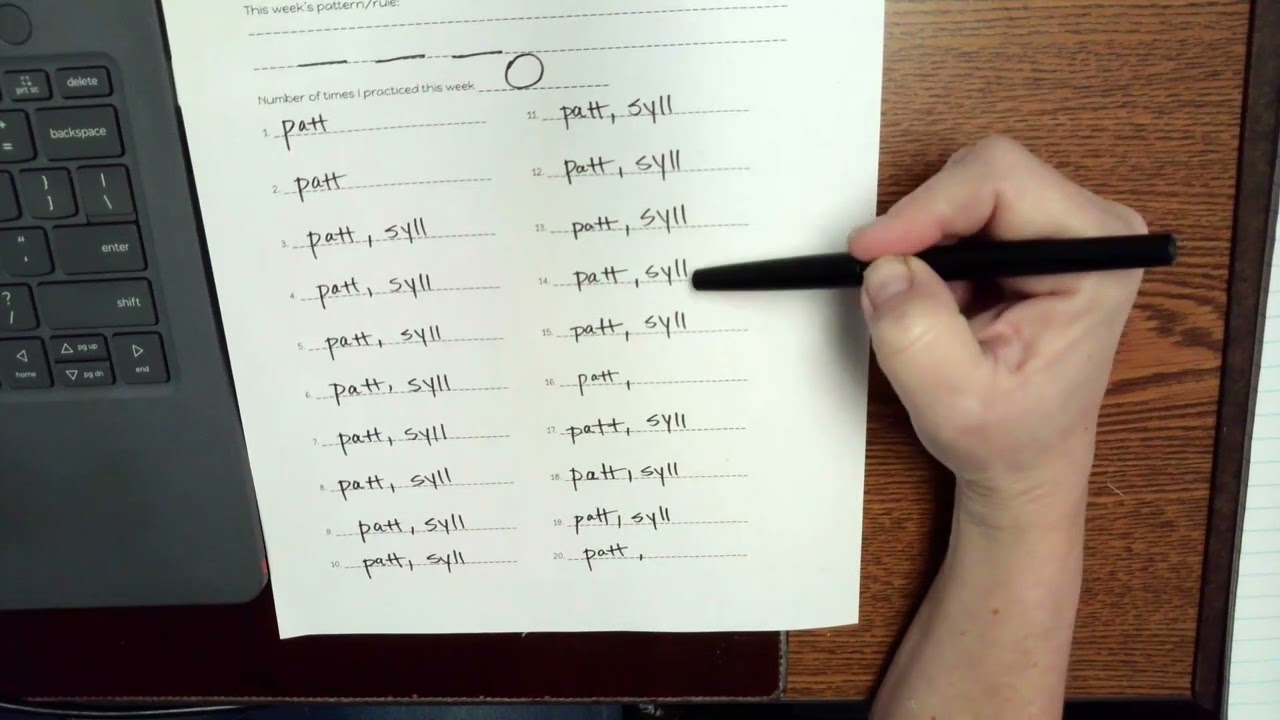 This week's pattern/rule:
Number of times I practiced this week
1. patt
2. patt
3. patt, syll
4. patt, syll
5. patt, syll
6. patt, syll
7. patt, syll
8. patt, syll
9. patt, syll
10. patt, syll
11. patt, syll
12. patt, syll
13. patt, syll
14. patt, syll
15. patt, syll
16. patt,
17. patt, syll
18. patt, syll
19. patt, syll
20. patt,
prt sc
delete
+
=
backspace
}
]
|
\
"
'
enter
?
/
shift
home
pg up
pg dn
end